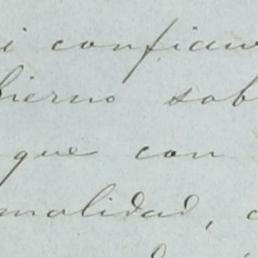 i confian
bierno sob
que con
malidad,